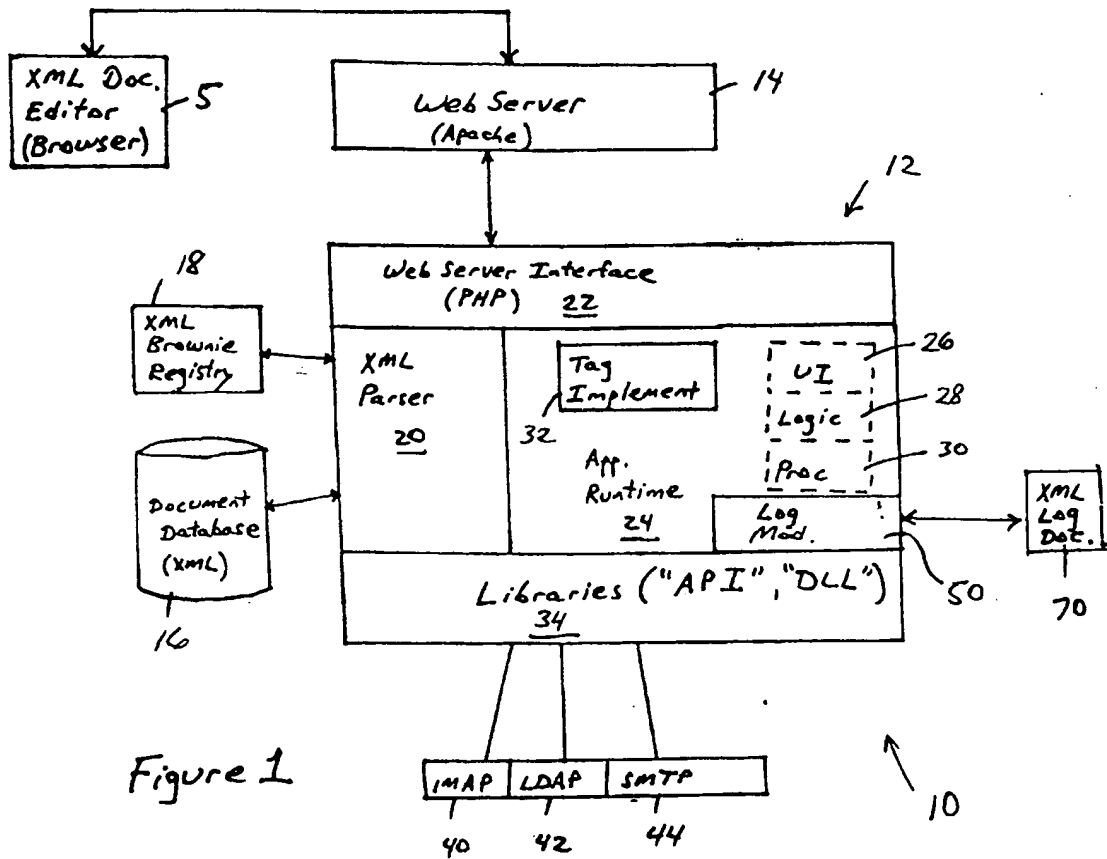 XML Doc.
Editor
(Browser)
5
Web Server
(Apache)
14
12
Web Server Interface
(PHP) 22
18
XML
Brownie
Registry
XML
Parser
20
Tag
Implement
32
UI
26
Logic
28
Proc
30
App.
Runtime
24
Log
Mod.
50
XML
Log
Doc.
70
Document
Database
(XML)
16
Libraries ("API", "DLL")
34
Figure 1
IMAP LDAP SMTP
40 42 44
10